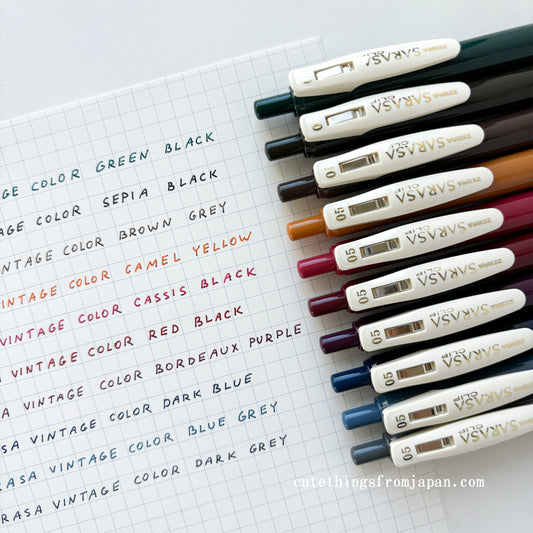 GE COLOR GREEN BLACK
AGE COLOR SEPIA BLACK
NTAGE COLOR BROWN GREY
INTAGE COLOR CAMEL YELLOW
VINTAGE COLOR CASSIS BLACK
A VINTAGE COLOR RED BLACK
A VINTAGE COLOR BORDEAUX PURPLE
SA VINTAGE COLOR DARK BLUE
RASA VINTAGE COLOR BLUE GREY
RASA VINTAGE COLOR DARK GREY
SARASA CLIP ZEBRA
SARASA CLIP ZEBRA
SARASA CLIP ZEBRA
05 SARASA CLIP ZEBRA
05 SARASA CLIP ZEBRA
05 SARASA CLIP ZEBRA
05 SARASA CLIP ZEBRA
05 SARASA CLIP ZEBRA
05 SARASA CLIP ZEBRA
05 SARASA CLIP ZEBRA
cutethingsfromjapan.com